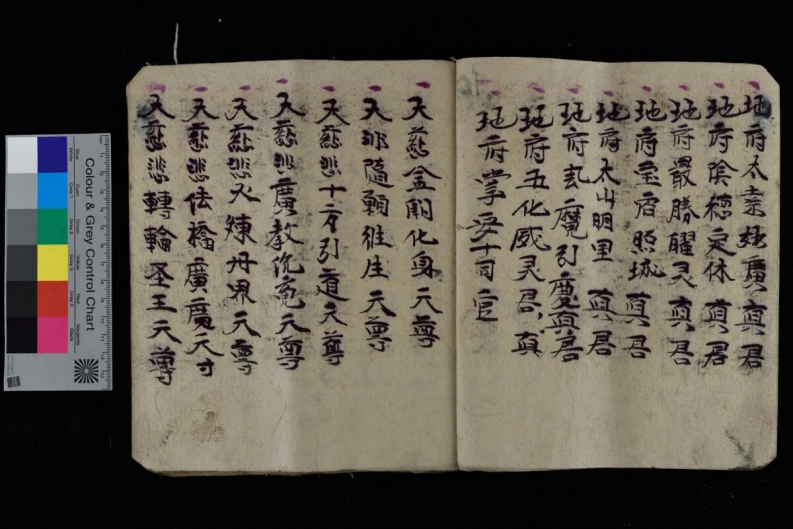 地府太素妙廣真君
地府陰德定休真君
地府最勝耀灵真君
地府宝宿照城真君
地府太山明里真君
地府玄魔引慶真君
地府五化威灵君真
地府掌受十司官
天慈金闕化身天尊
天悲隨願往生天尊
天慈悲十方引道天尊
天慈悲廣教沉冤天尊
天慈悲火煉丹界天尊
天慈悲法橋廣度天寸
天慈悲轉輪圣王天尊
Colour & Grey Control Chart
Blue
Cyan
Green
Yellow
Red
Magenta
White
Grey
Black